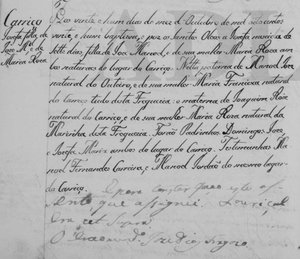 Carriço
Josefa filha de
José Mel. de
Maria Rosa
Aos vinte e hum dias do mez d'Outubro de mil oito centos
vinte, e hum Baptizei, e puz os Santos Oleos a Josefa nascida de
oito dias, filha de José Manoel, e de sua mulher Maria Rosa am
bos naturaes do lugar do Carriço. Netta paterna de Manoel
natural do Outeiro, e de sua mulher Maria Francisca natural
do Carriço tudo desta Freguezia: e materna de Joaquim Rosa
natural do Carriço, e de sua mulher Maria Rosa natural da
Marinha desta Freguezia. Forão Padrinhos Domingos José
Josefa Maria ambos do lugar do Carriço. Testemunhas Ma
noel Fernandes Carreira, e Manoel Jordão do mesmo lugar
do Carriço. E para constar passei este as
sento que assignei. Louriçal
era ut supra
O